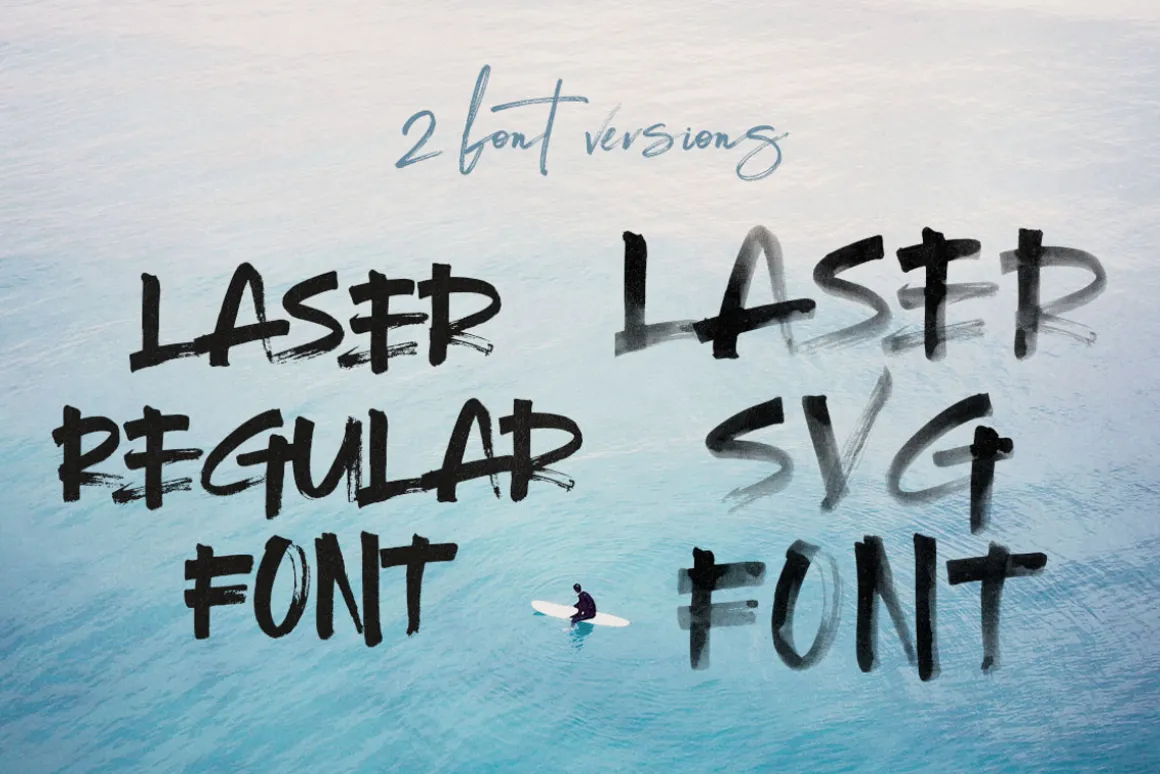 2 font versions
LASER
REGULAR
FONT
LASER
SVG
FONT